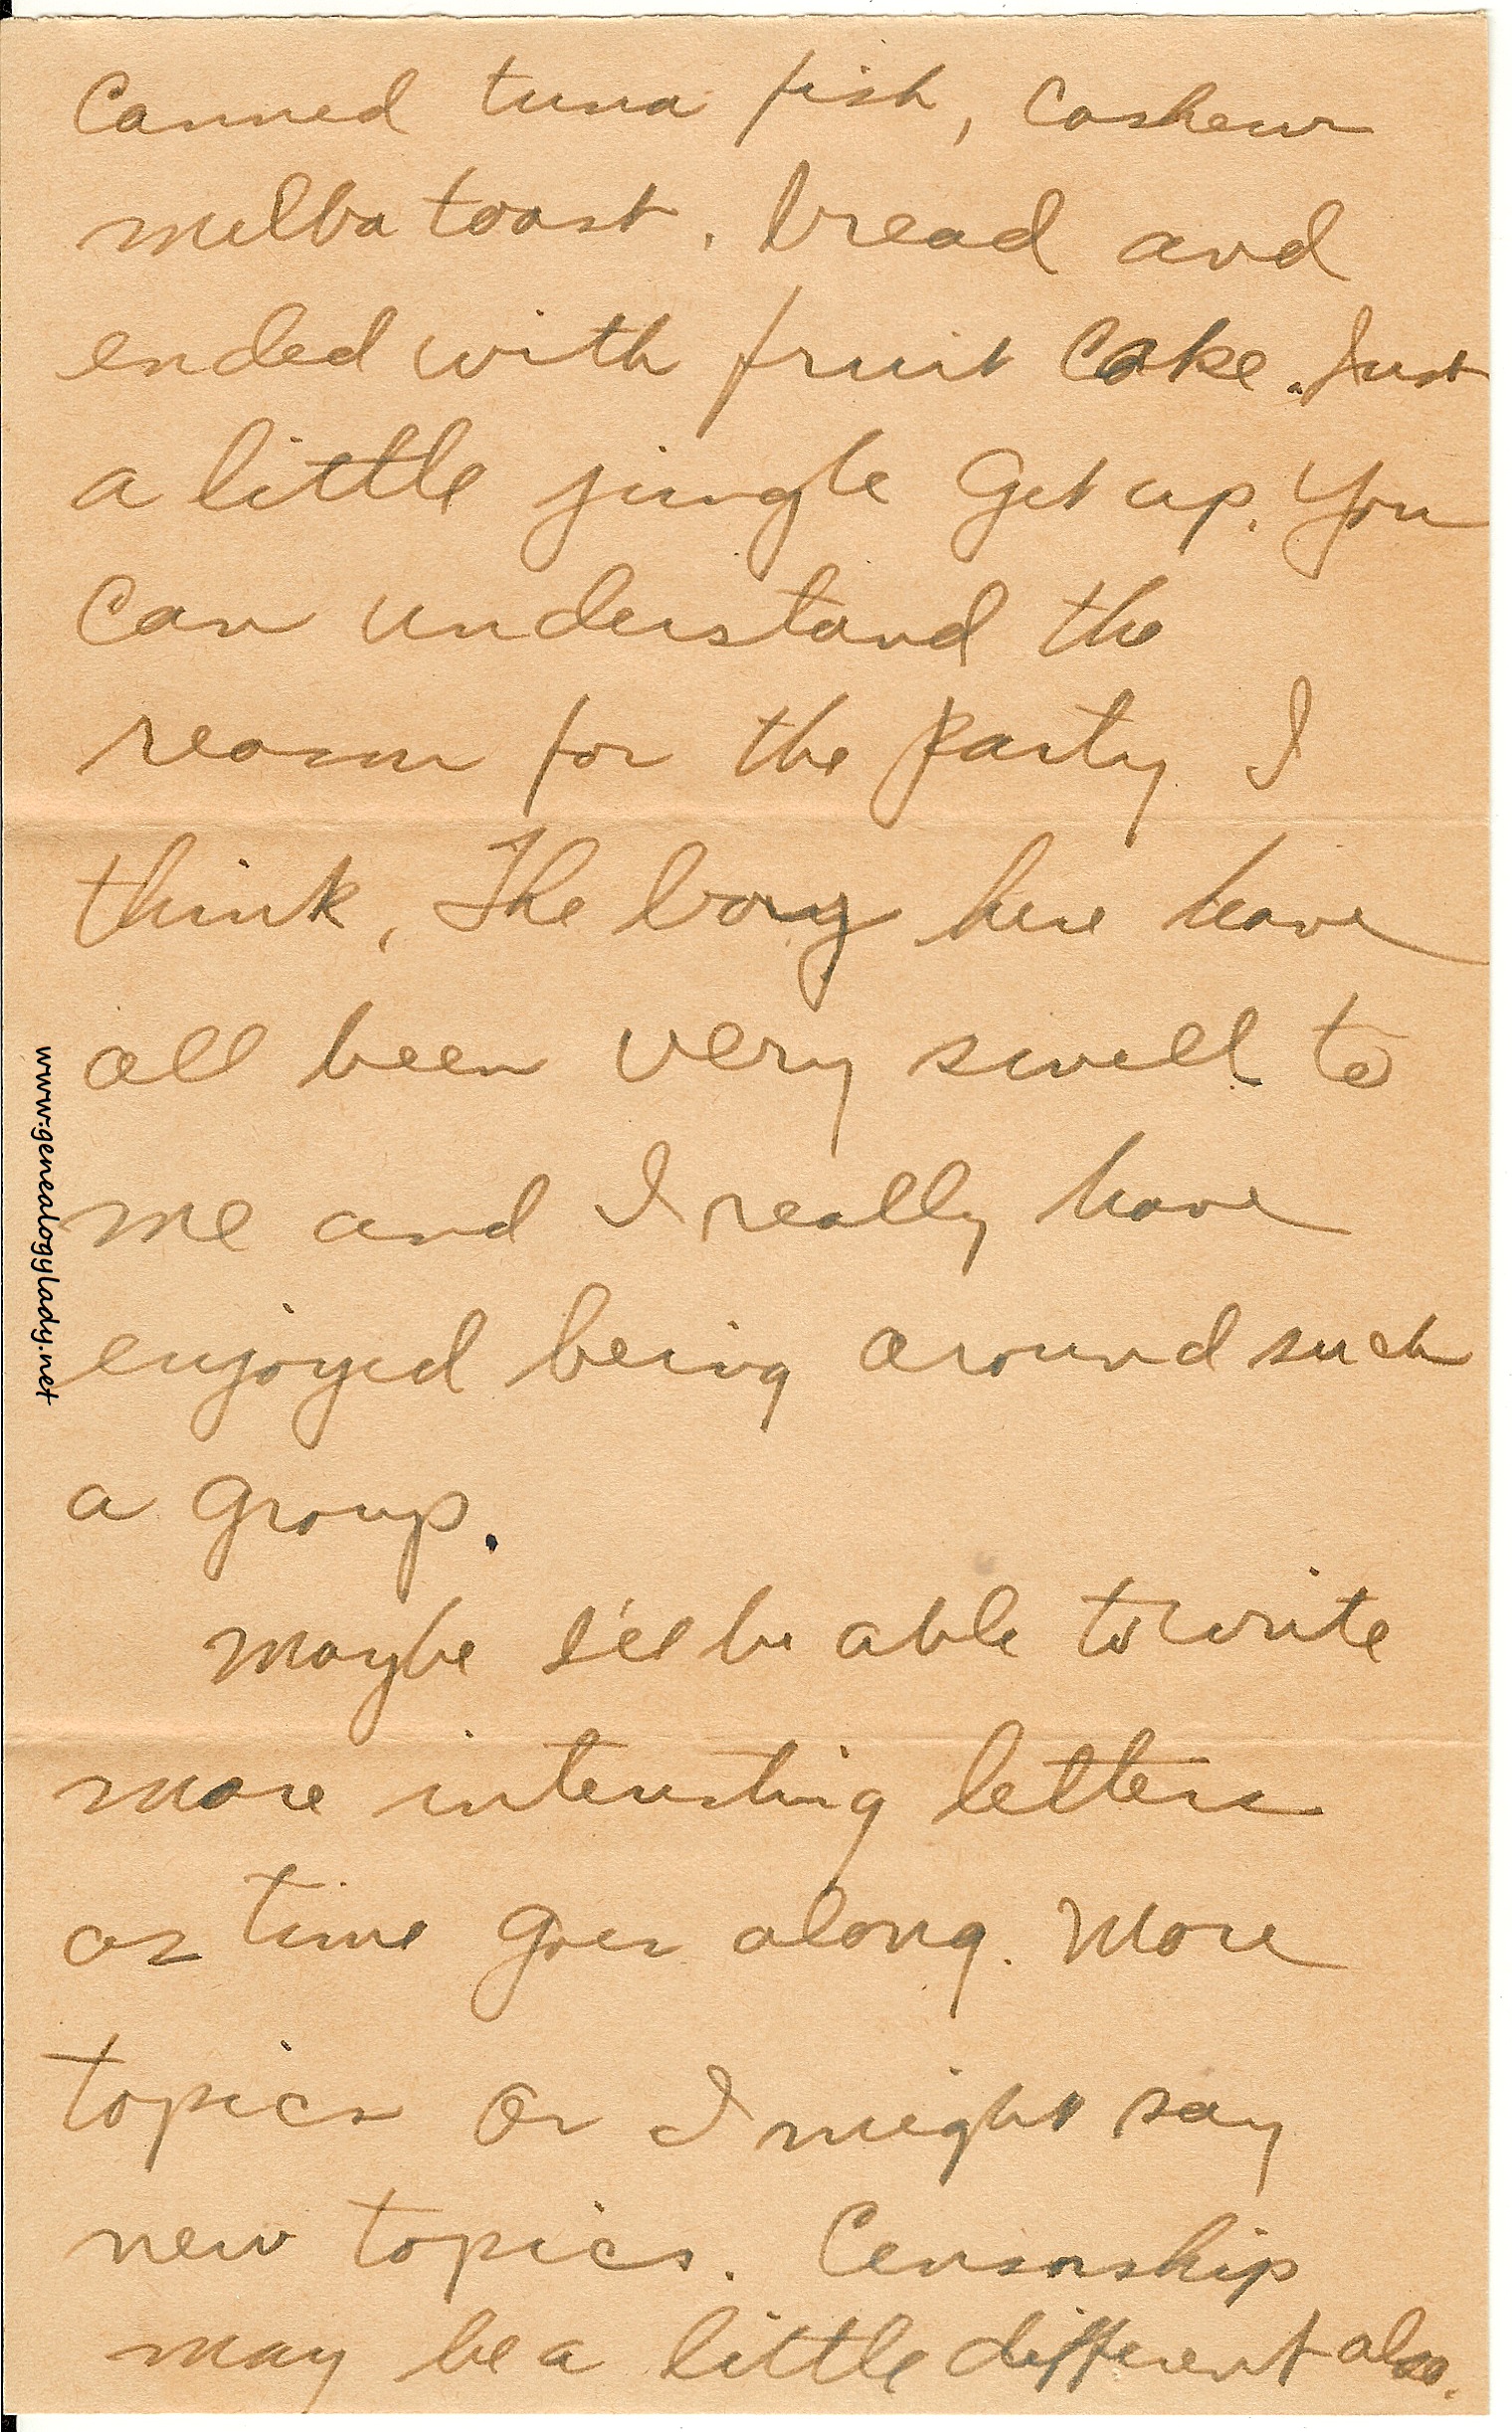 Canned tuna fish, Cashews
melba toast. bread and
ended with fruit Cake. Just
a little jungle Get up. You
Can understand the
reason for the party I
think, The boys here have
all been very swell to
me and I really have
enjoyed being around such
a group.
Maybe I'll be able to write
more interesting letters
as time goes along. More
topics or I might say
new topics. Censorship
may be a little different also.
www.genealogylady.net